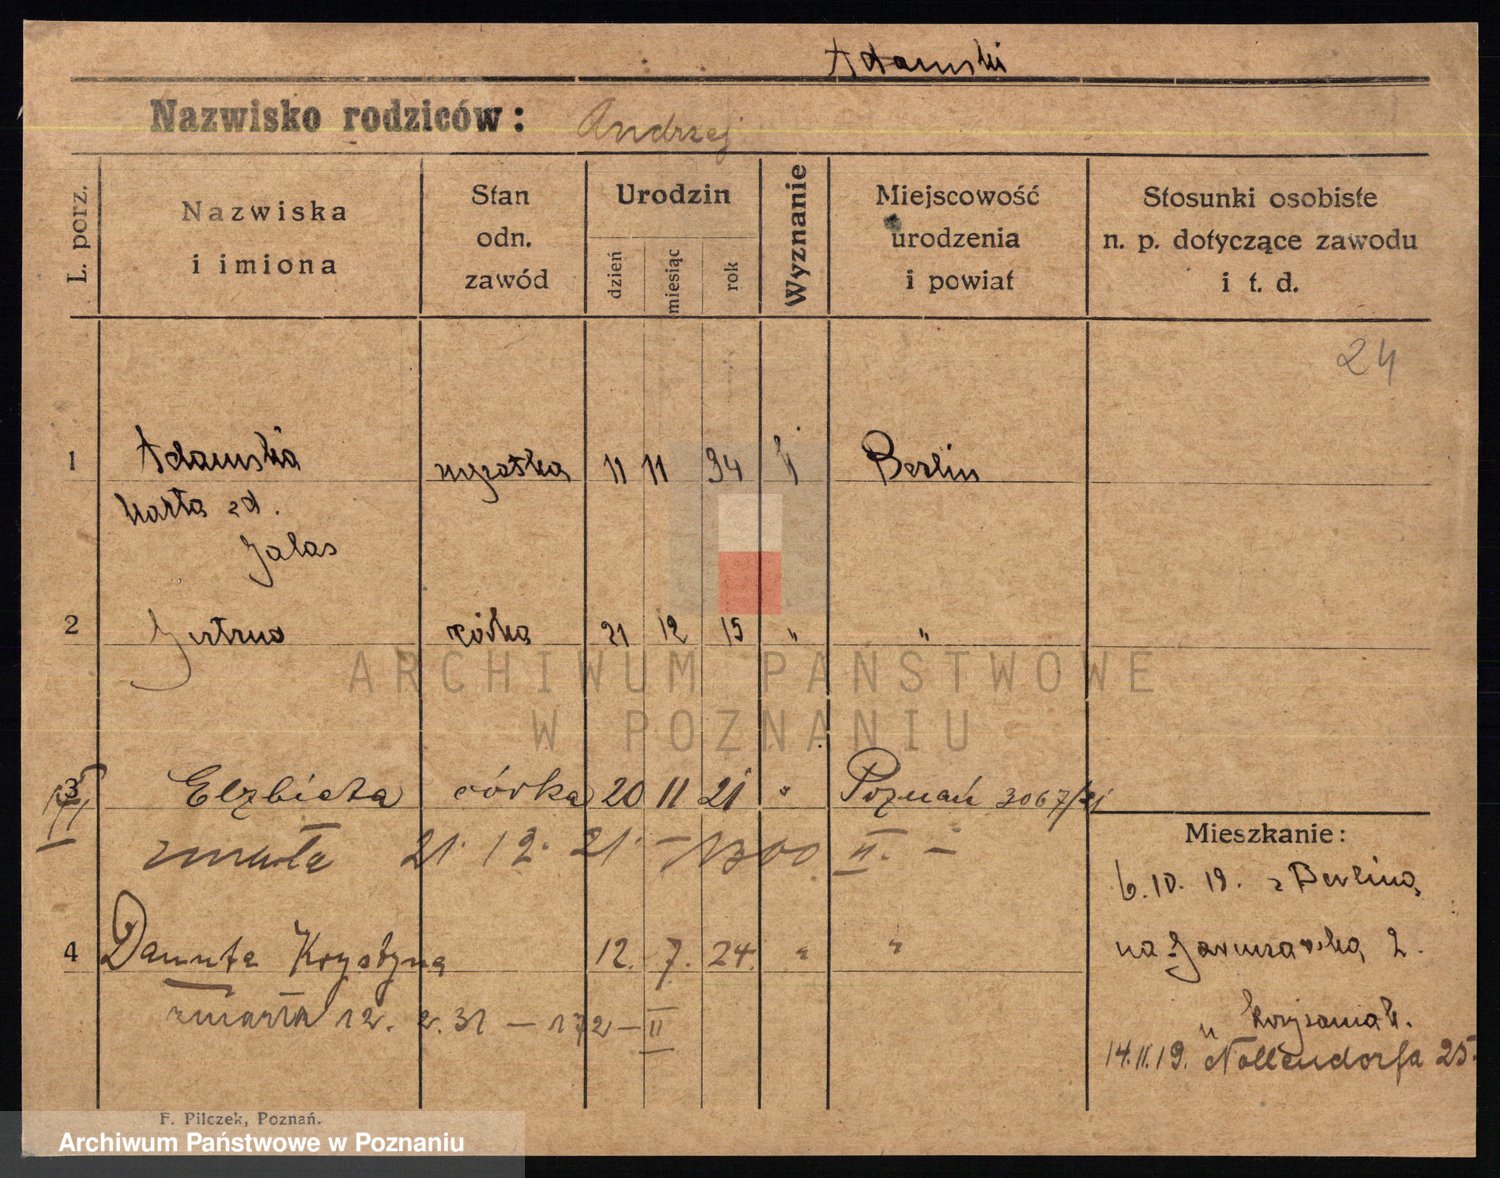 Adamski
Nazwisko rodziców: Andrzej
L. porz.
Nazwiska
i imiona
Stan
odn.
zawód
Urodzin
dzień
miesiąc
rok
Wyznanie
Miejscowość
urodzenia
i powiat
Stosunki osobiste
n. p. dotyczące zawodu
i t. d.
24
1 Adamska 11 11 94 Berlin
zd.
Jalas
2 córka 21 12 15 " "
ARCHIWUM PAŃSTWOWE
W POZNANIU
3 Elżbieta córka 20 11 21 " Poznań 3067/21
zmarła 21. 12. 21. – 1300. II. –
Mieszkanie:
6. 10. 19. z Berlina
4 Danuta Krystyna 12. 7. 24. " "
na 2.
zmarła 12. 2. 31 – 172 – II
u
14. 11. 19. Nollendorfa 25
F. Pilczek, Poznań.
Archiwum Państwowe w Poznaniu